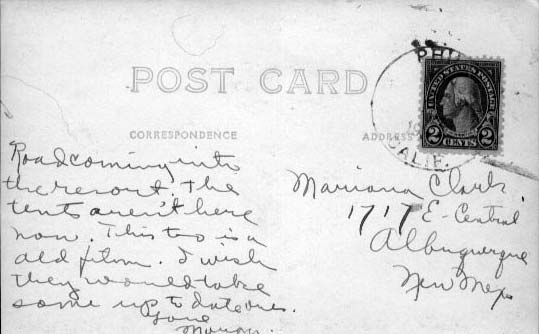 POST CARD
CORRESPONDENCE
ADDRESS
PHI
CALIF.
UNITED STATES POSTAGE
2 CENTS 2
Road coming into
the resort. The
tents aren't here
now. This too is a
old film. I wish
they would take
some up to date ones.
Love
Marion.
Mariana Clark
1717 E-Central
Albuquerque
New Mex